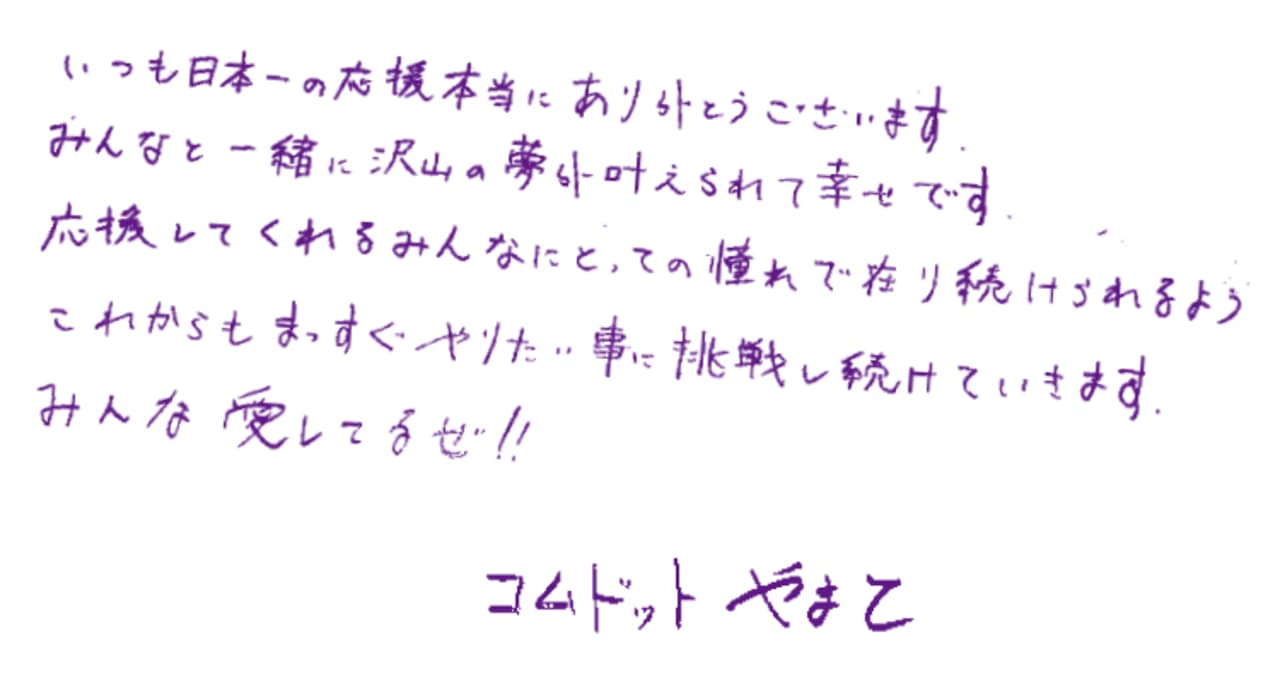 いつも日本一の応援本当にありがとうございます.
みんなと一緒に沢山の夢が叶えられて幸せです.
応援してくれるみんなにとっての憧れで在り続けられるよう
これからもまっすぐやりたい事に挑戦し続けていきます.
みんな愛してるぜ!!
コムドット やまと